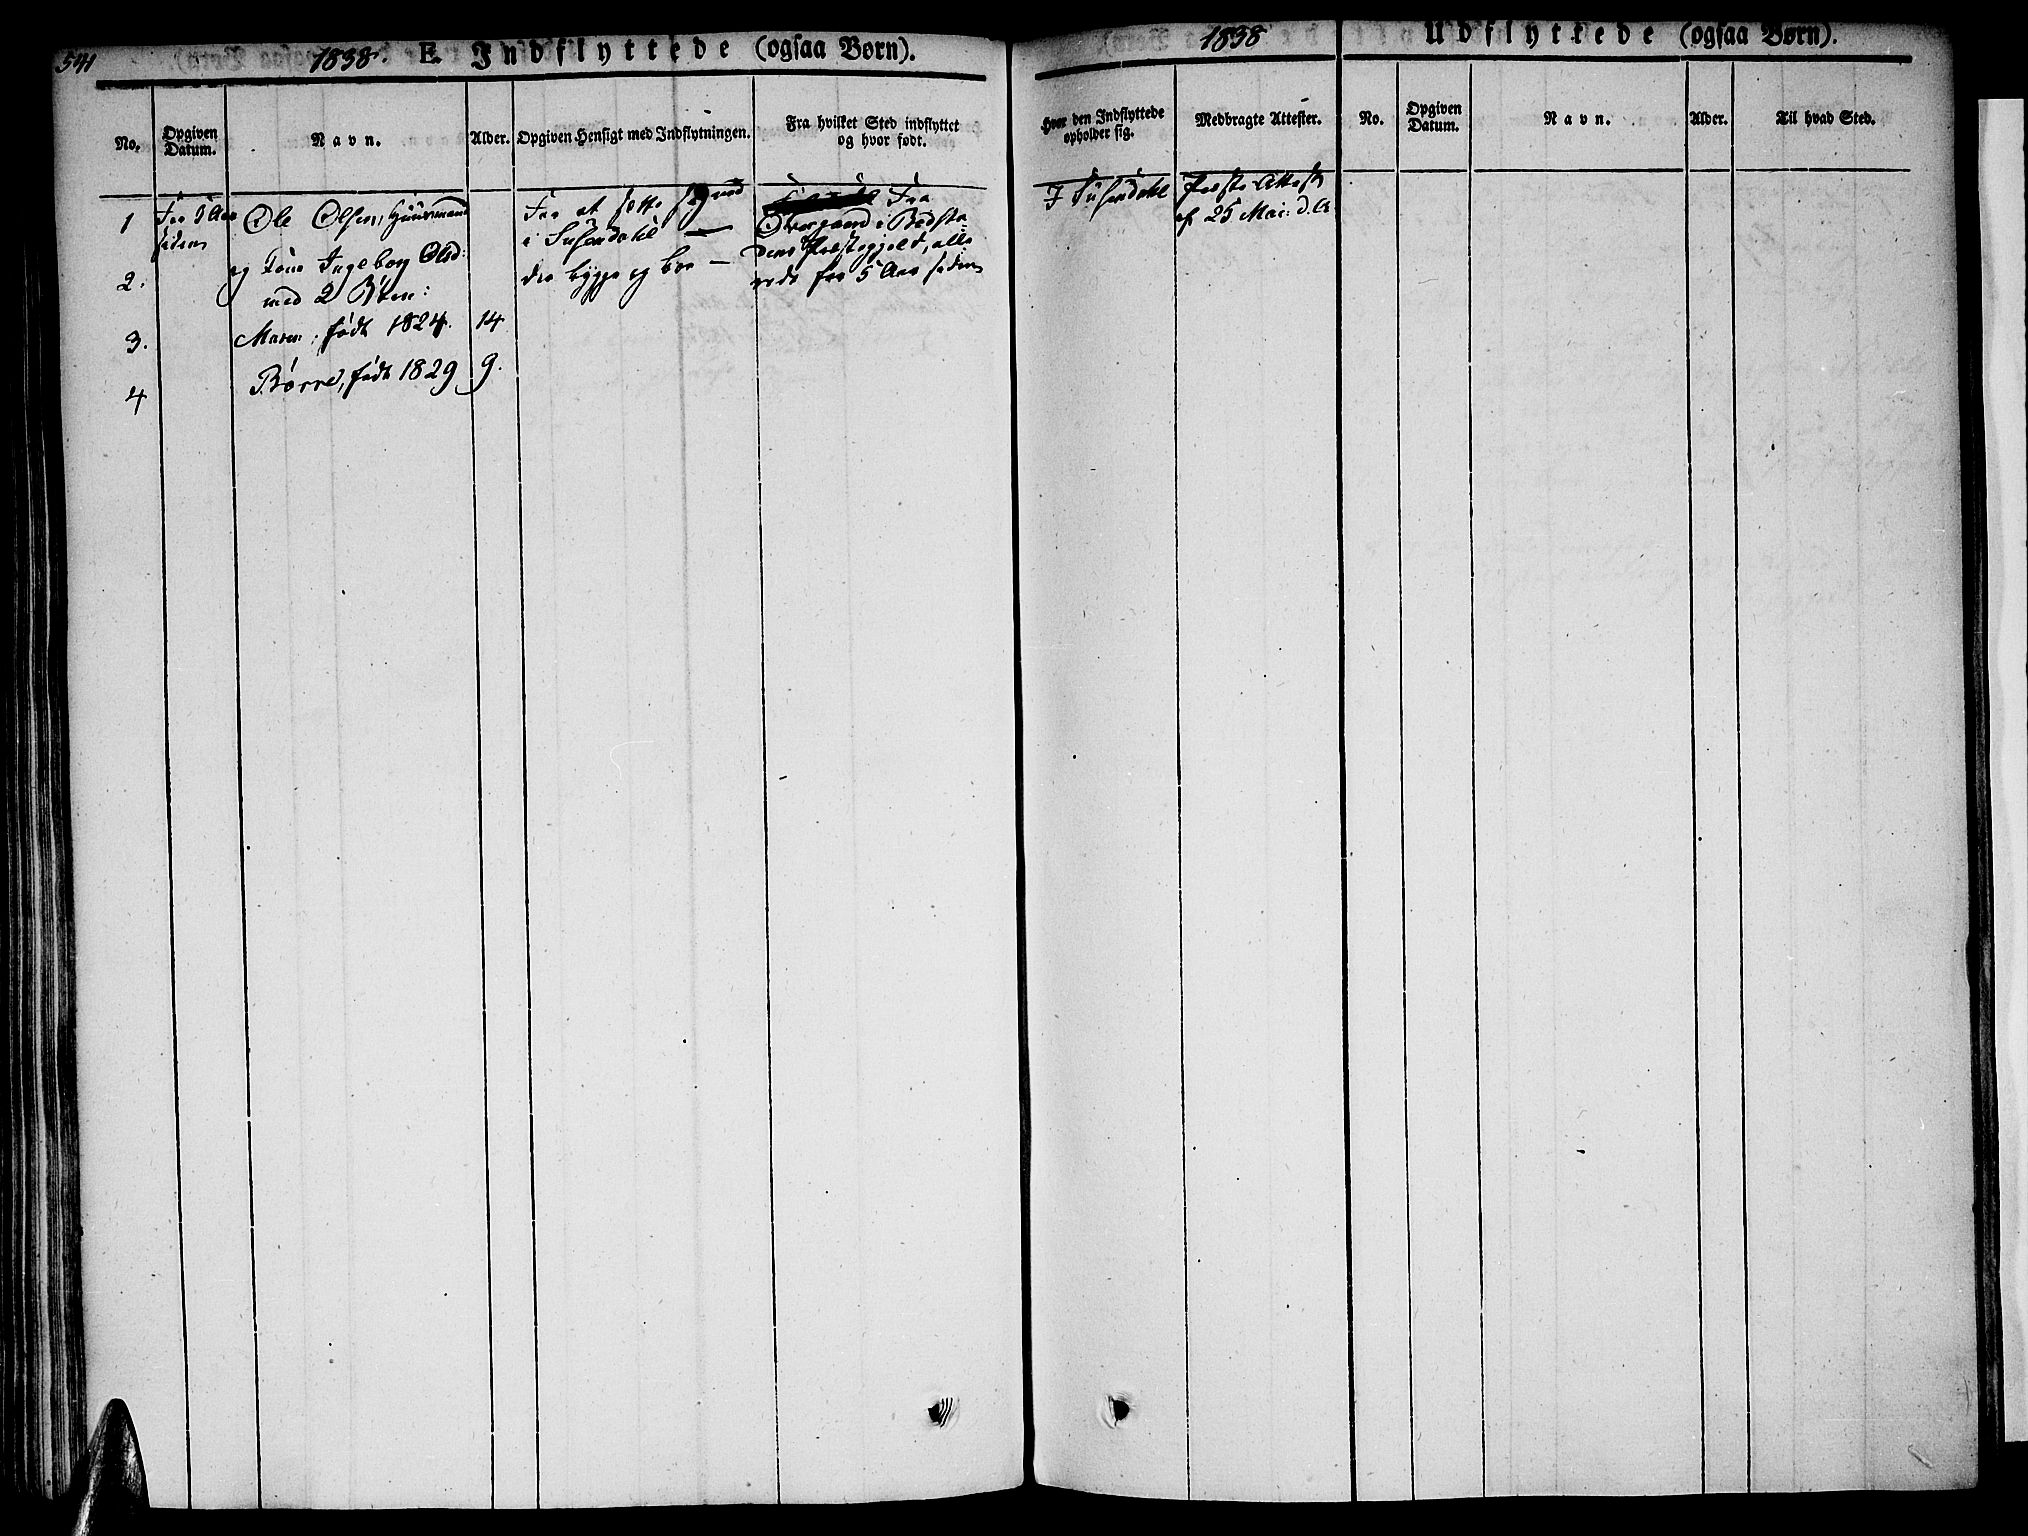 541
1838. E. Indflyttede (ogsaa Børn).
No. Opgiven Datum. Navn. Alder. Opgiven Hensigt med Indflytningen. Fra hvilket Sted indflyttet og hvor født.
1 For 5 Aar siden Ole Olsen, Huusmand
2. og Kone Ingeborg Olsd:
med 2 Børn:
3. Maren, født 1824. 14
4 Børre, født 1829 9.
For at sætte
i Susendahl —
der bygge og boe —
Fra
i Bedsta
dens Præstegjeld, alle
rede for 5 Aar siden
1838 Udflyttede (ogsaa Børn).
Hvor den Indflyttede opholder sig. Medbragte Attester. No. Opgiven Datum. Navn. Alder. Til hvad Sted.
I Susendahl Præste Attest
af 25 Mai: d. A